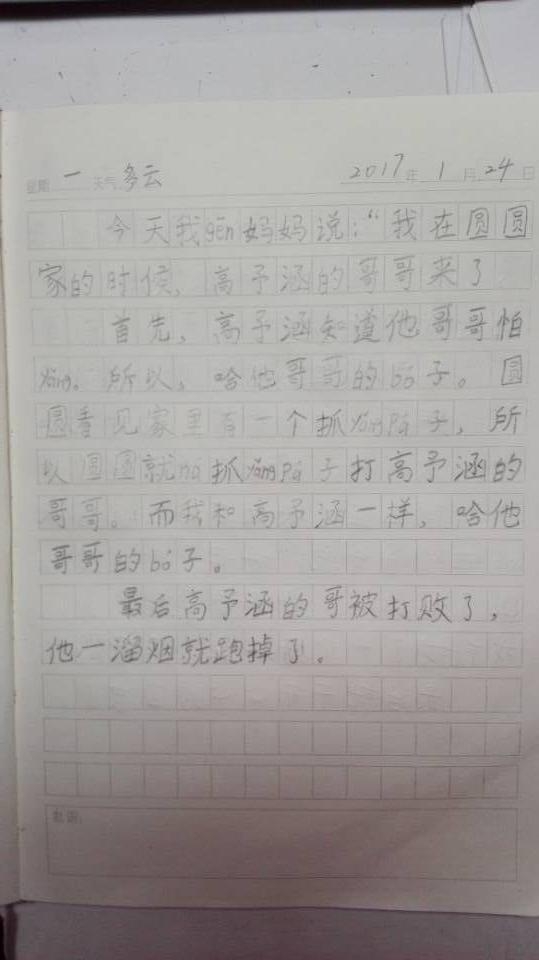 星期 一 天气 多云 2017 年 1 月 24 日
今天我gēn妈妈说：“我在圆圆
家的时候，高予涵的哥哥来了
首先，高予涵知道他哥哥怕
yǎng。所以，哈他哥哥的bó子。圆
圆看见家里有一个抓yǎngPá子，所
以圆圆就ná抓yǎngpá子打高予涵的
哥哥。而我和高予涵一样，哈他
哥哥的bó子。
最后高予涵的哥被打败了，
他一溜烟就跑掉了。
批语：